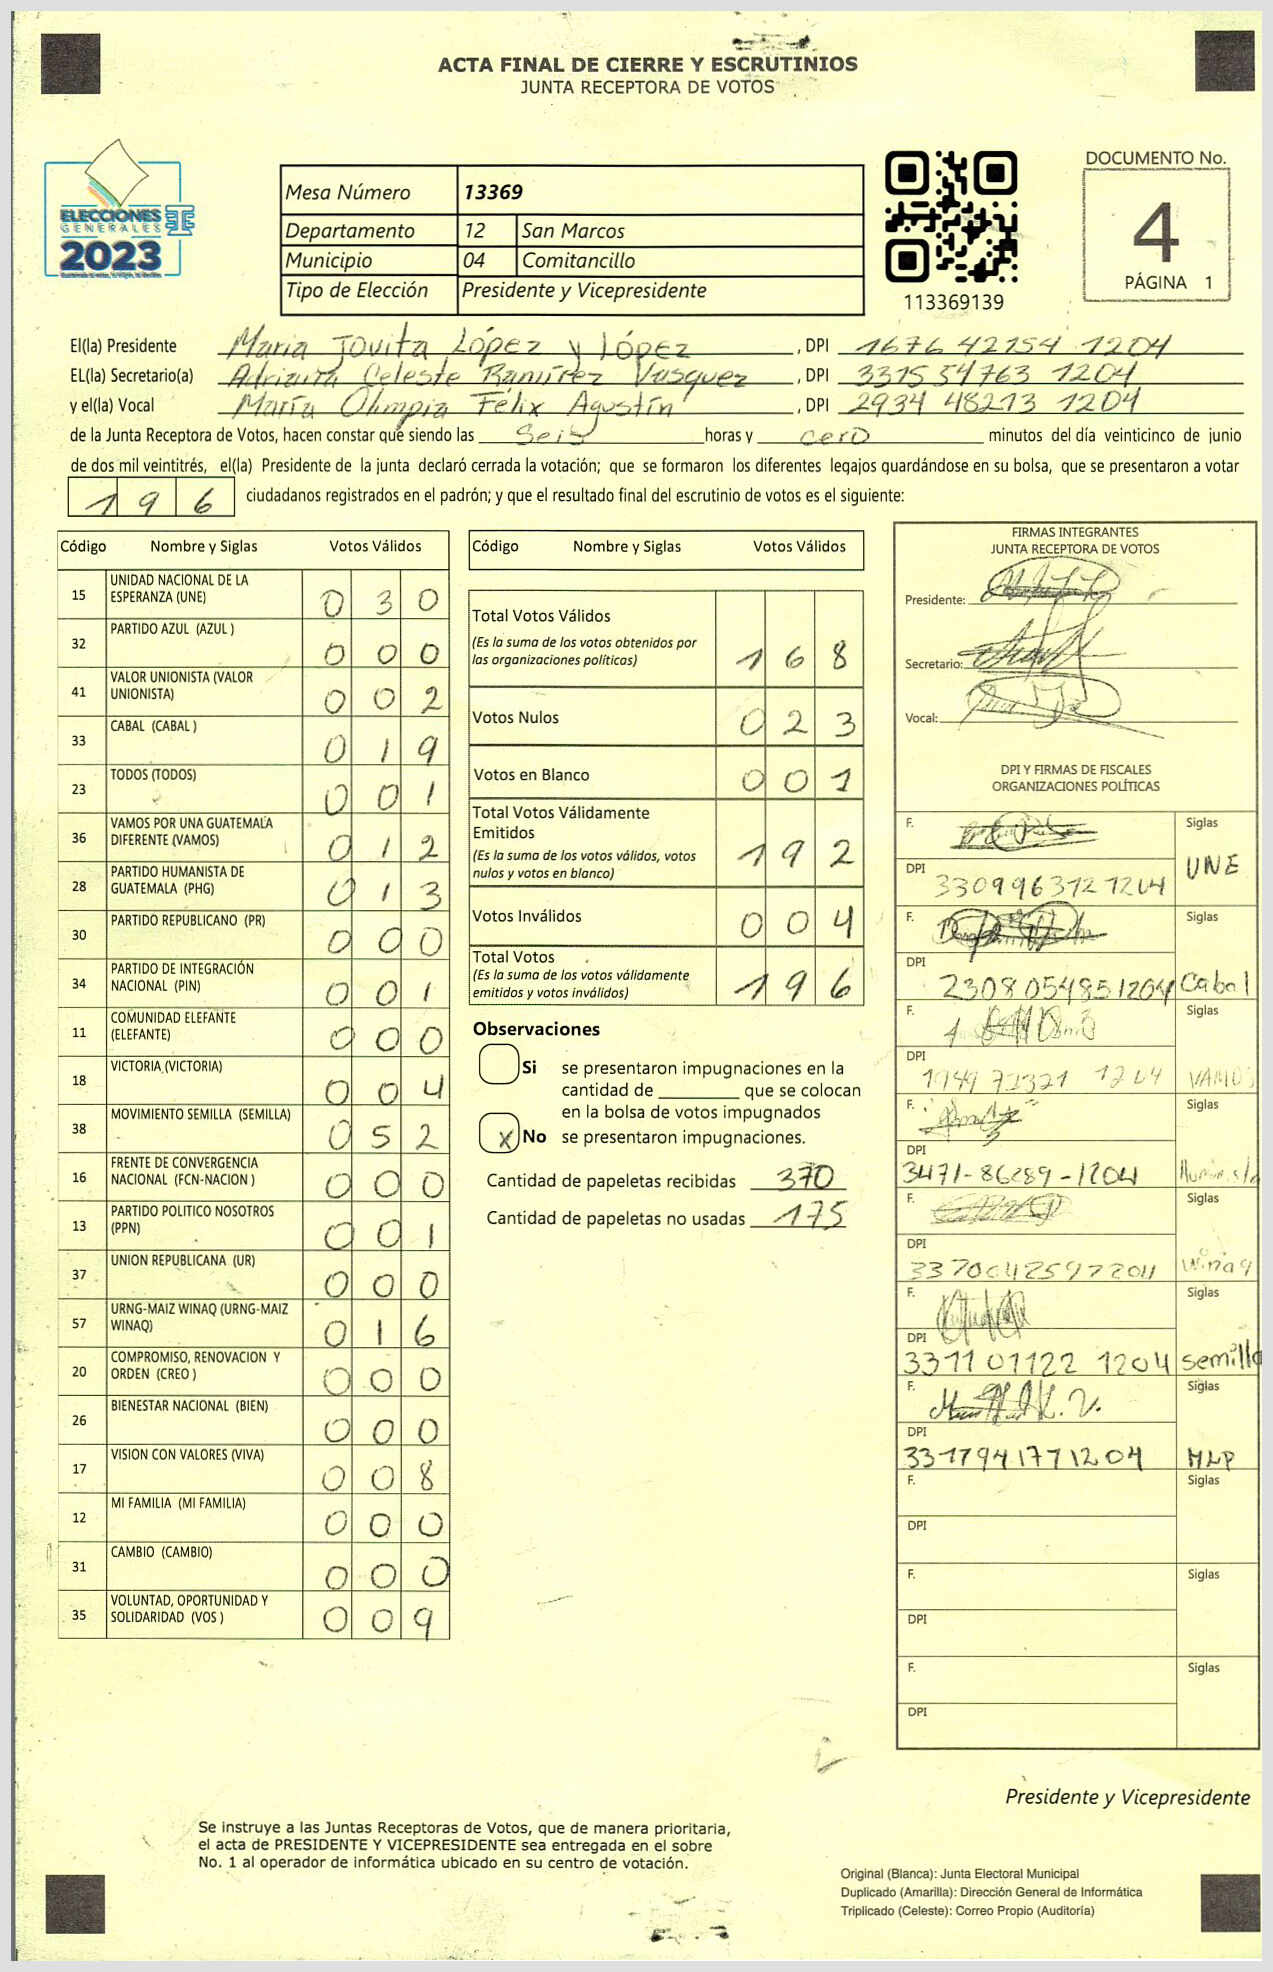 ACTA FINAL DE CIERRE Y ESCRUTINIOS
JUNTA RECEPTORA DE VOTOS
ELECCIONES
GENERALES
2023
Mesa Número 13369
Departamento 12 San Marcos
Municipio 04 Comitancillo
Tipo de Elección Presidente y Vicepresidente
113369139
DOCUMENTO No.
4
PÁGINA 1
El(la) Presidente Maria Jovita López y López, DPI 1676 42154 1204
EL(la) Secretario(a) Adriana Celeste Ramírez Vasquez, DPI 3315 54763 1204
y el(la) Vocal María Olimpia Félix Agustín, DPI 2934 48213 1204
de la Junta Receptora de Votos, hacen constar que siendo las Seis horas y cero minutos del día veinticinco de junio
de dos mil veintitrés, el(la) Presidente de la junta declaró cerrada la votación; que se formaron los diferentes legajos guardándose en su bolsa, que se presentaron a votar
196 ciudadanos registrados en el padrón; y que el resultado final del escrutinio de votos es el siguiente:
Código Nombre y Siglas Votos Válidos
15 UNIDAD NACIONAL DE LA ESPERANZA (UNE) 030
32 PARTIDO AZUL (AZUL ) 000
41 VALOR UNIONISTA (VALOR UNIONISTA) 002
33 CABAL (CABAL ) 019
23 TODOS (TODOS) 001
36 VAMOS POR UNA GUATEMALA DIFERENTE (VAMOS) 012
28 PARTIDO HUMANISTA DE GUATEMALA (PHG) 013
30 PARTIDO REPUBLICANO (PR) 000
34 PARTIDO DE INTEGRACIÓN NACIONAL (PIN) 001
11 COMUNIDAD ELEFANTE (ELEFANTE) 000
18 VICTORIA (VICTORIA) 004
38 MOVIMIENTO SEMILLA (SEMILLA) 052
16 FRENTE DE CONVERGENCIA NACIONAL (FCN-NACION ) 000
13 PARTIDO POLITICO NOSOTROS (PPN) 001
37 UNION REPUBLICANA (UR) 000
57 URNG-MAIZ WINAQ (URNG-MAIZ WINAQ) 016
20 COMPROMISO, RENOVACION Y ORDEN (CREO ) 000
26 BIENESTAR NACIONAL (BIEN) 000
17 VISION CON VALORES (VIVA) 008
12 MI FAMILIA (MI FAMILIA) 000
31 CAMBIO (CAMBIO) 000
35 VOLUNTAD, OPORTUNIDAD Y SOLIDARIDAD (VOS ) 009
Código Nombre y Siglas Votos Válidos
Total Votos Válidos 168
(Es la suma de los votos obtenidos por
las organizaciones políticas)
Votos Nulos 023
Votos en Blanco 001
Total Votos Válidamente
Emitidos 192
(Es la suma de los votos válidos, votos
nulos y votos en blanco)
Votos Inválidos 004
Total Votos 196
(Es la suma de los votos válidamente
emitidos y votos inválidos)
Observaciones
Si se presentaron impugnaciones en la
cantidad de ________ que se colocan
en la bolsa de votos impugnados
x No se presentaron impugnaciones.
Cantidad de papeletas recibidas 370
Cantidad de papeletas no usadas 175
FIRMAS INTEGRANTES
JUNTA RECEPTORA DE VOTOS
Presidente:
Secretario:
Vocal:
DPI Y FIRMAS DE FISCALES
ORGANIZACIONES POLÍTICAS
F. Siglas
DPI 3309963121204 UNE
F. Siglas
DPI 2308054851204 Cabal
F. Siglas
DPI 1949 71321 1204 VAMOS
F. Siglas
DPI 3471-86289-1204 Humanista
F. Siglas
DPI Winaq
F. Siglas
DPI 3311 01122 1204 Semilla
F. Siglas
DPI 3317941771204 MLP
F. Siglas
DPI
F. Siglas
DPI
F. Siglas
DPI
Presidente y Vicepresidente
Se instruye a las Juntas Receptoras de Votos, que de manera prioritaria,
el acta de PRESIDENTE Y VICEPRESIDENTE sea entregada en el sobre
No. 1 al operador de informática ubicado en su centro de votación.
Original (Blanca): Junta Electoral Municipal
Duplicado (Amarilla): Dirección General de Informática
Triplicado (Celeste): Correo Propio (Auditoría)